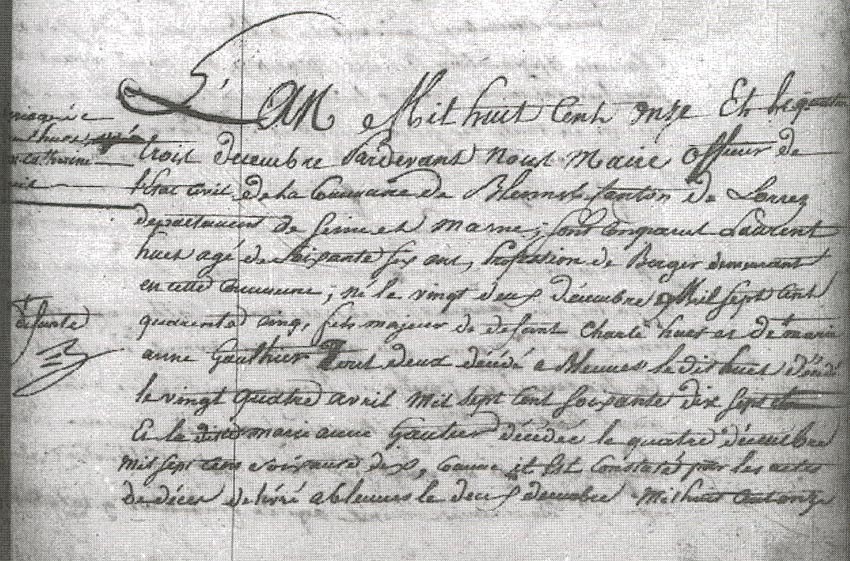 L'AN Mil huit Cent onze Et le
trois decembre Pardevant nous Maire Officier de
l'Etat civil de la Commune de Blennes Canton de Lorrez
departement de Seine et marne; sont comparut Laurent
hues agé de Soixante six ans, Profession de Berger demeurant
en cette Commune; né le vingt deux décembre Mil sept cent
quarente cinq, fils majeur de defunt Charle hues et de marie
anne Gauthier Tout deux décédé a Blennes le dit hues
le vingt quatre avril mil sept cent soixante dix sept
E la marie anne Gautier décédée le quatre décembre
mil sept cens soixante dix, comme il est Constaté par les actes
de décès delivré a blennes le deux decembre mil huit cent onze
mariage
hues
defunte